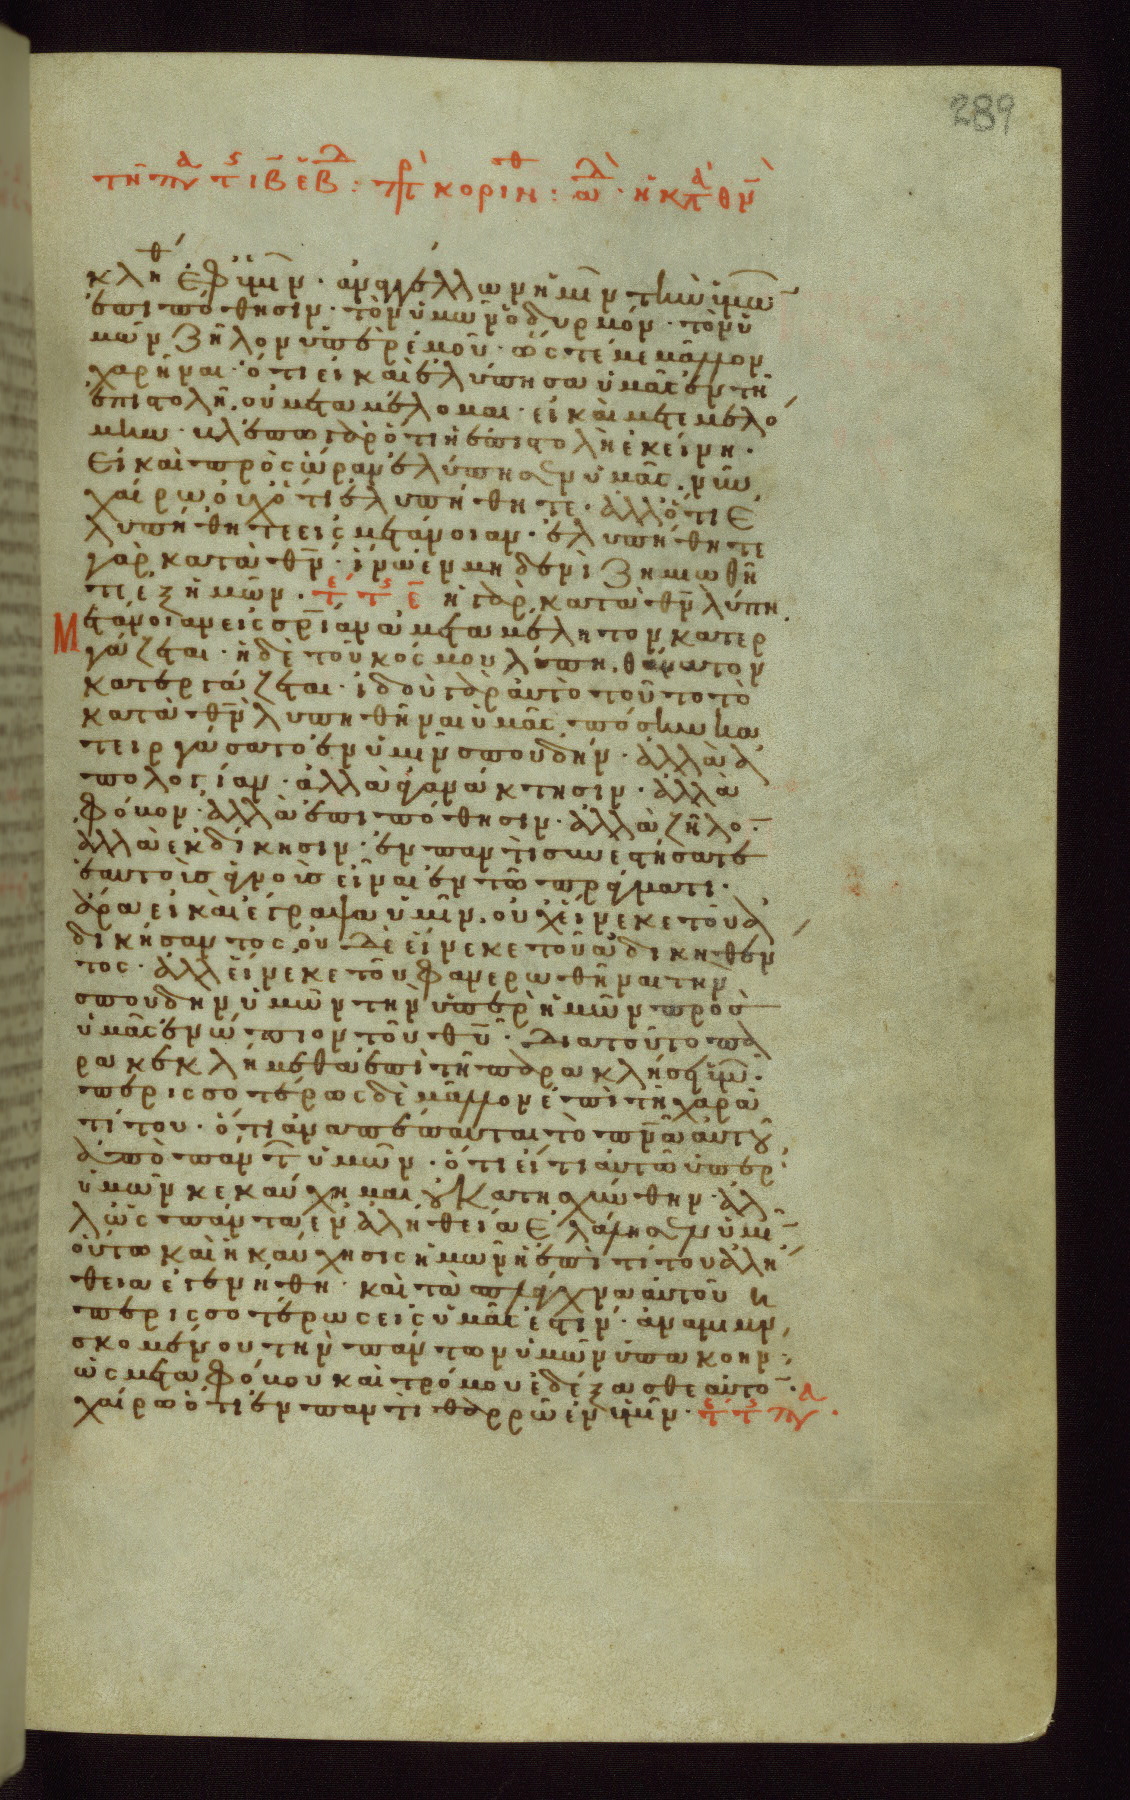 289
τῆ πν τς ιβ ἑβ : πρ κορινθ : ἀδλ · ἡ κατὰ θν
κλήθη ἐφ ὑμῖν · ἀναγγέλλων ἡμῖν τὴν ὑμῶν
ἐπιπόθησιν · τὸν ὑμῶν ὀδυρμόν · τὸν ὑ
μῶν ζῆλον ὑπὲρ ἐμοῦ · ὥστε με μᾶλλον
χαρῆναι · ὅτι εἰ καὶ ἐλύπησα ὑμᾶς ἐν τῆ
ἐπιστολῆ, οὐ μεταμέλομαι · εἰ καὶ μετεμελό
μην · βλέπω γὰρ ὅτι ἡ ἐπιστολὴ ἐκείνη ·
Εἰ καὶ πρὸς ὥραν ἐλύπησεν ὑμᾶς . νῦν
χαίρω οὐχ ὅτι ἐλυπήθητε · ἀλλ ὅτι ἐ
λυπήθητε εἰς μετάνοιαν · ἐλυπήθητε
γὰρ κατὰ θν · ἵνα ἐν μηδενὶ ζημιωθῆ
τε ἐξ ἡμῶν · τε τς ε ἡ γὰρ κατὰ θν λύπη .
Μετάνοιαν εἰς σριαν ἀμεταμέλητον κατερ
γάζεται · ἡ δὲ τοῦ κόσμου λύπη . θάνατον
κατεργάζεται · ἰδοὺ γὰρ αὐτὸ τοῦτο τὸ
κατὰ θν λυπηθῆναι ὑμᾶς πόσην κα
τειργάσατο ἐν ὑμῖν σπουδήν · ἀλλὰ ἀ
πολογίαν · ἀλλὰ ἀγανάκτησιν · ἀλλὰ
φόβον · ἀλλὰ ἐπιπόθησιν · ἀλλὰ ζῆλον
ἀλλὰ ἐκδίκησιν · ἐν παντὶ συνεστήσατε
ἑαυτοὺς ἁγνοὺς εἶναι ἐν τῶ πράγματι ·
ἄρα εἰ καὶ ἔγραψα ὑμῖν . οὐχ εἵνεκε τοῦ ἀ
δικήσαντος, οὐ δὲ εἵνεκε τοῦ ἀδικηθέν
τος · ἀλλ εἵνεκε τοῦ φανερωθῆναι τὴν
σπουδὴν ὑμῶν τὴν ὑπὲρ ἡμῶν πρὸς
ὑμᾶς ἐνώπιον τοῦ θυ · Διατοῦτο πα
ρακεκλήμεθα ἐπὶ τῆ παρακλήσει ὑμῶν ·
περισσοτέρως δὲ μᾶλλον ἐπὶ τῆ χαρᾶ
τίτου · ὅτι ἀναπέπαυται τὸ πνα αὐτοῦ
ἀπὸ πάντων ὑμῶν · ὅτι εἴ τι αὐτῶ ὑπὲρ
ὑμῶν κεκαύχημαι οὐ κατησχύνθην · ἀλ
λ ὡς πάντα ἐν ἀληθεία ἐλάλησεν ὑμῖν
οὕτω καὶ ἡ καύχησις ἡμῶν ἡ ἐπὶ τίτου ἀλή
θεια ἐγενήθη · καὶ τὰ σπλάγχνα αὐτοῦ
περισσοτέρως εἰς ὑμᾶς ἐστίν · ἀναμιμνη
σκομένου τὴν πάντων ὑμῶν ὑπακοήν ·
ὡς μετὰ φόβου καὶ τρόμου ἐδέξασθε αὐτόν ·
χαίρω ὅτι ἐν παντὶ θαρρῶ ἐν ὑμῖν · τε τς πν ·